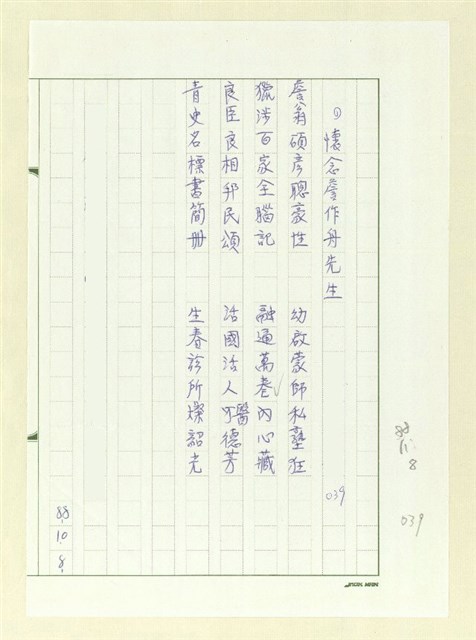 懷念詹作舟先生
039
詹翁碩彥聰豪性 幼啟蒙師私塾狂
獵涉百家全腦記 融通萬卷內心藏
良臣良相邦民頌 活國活人醫德芳
青史名標書簡册 生春診所燦韶光
88.10.8.
88.
11.
8
039